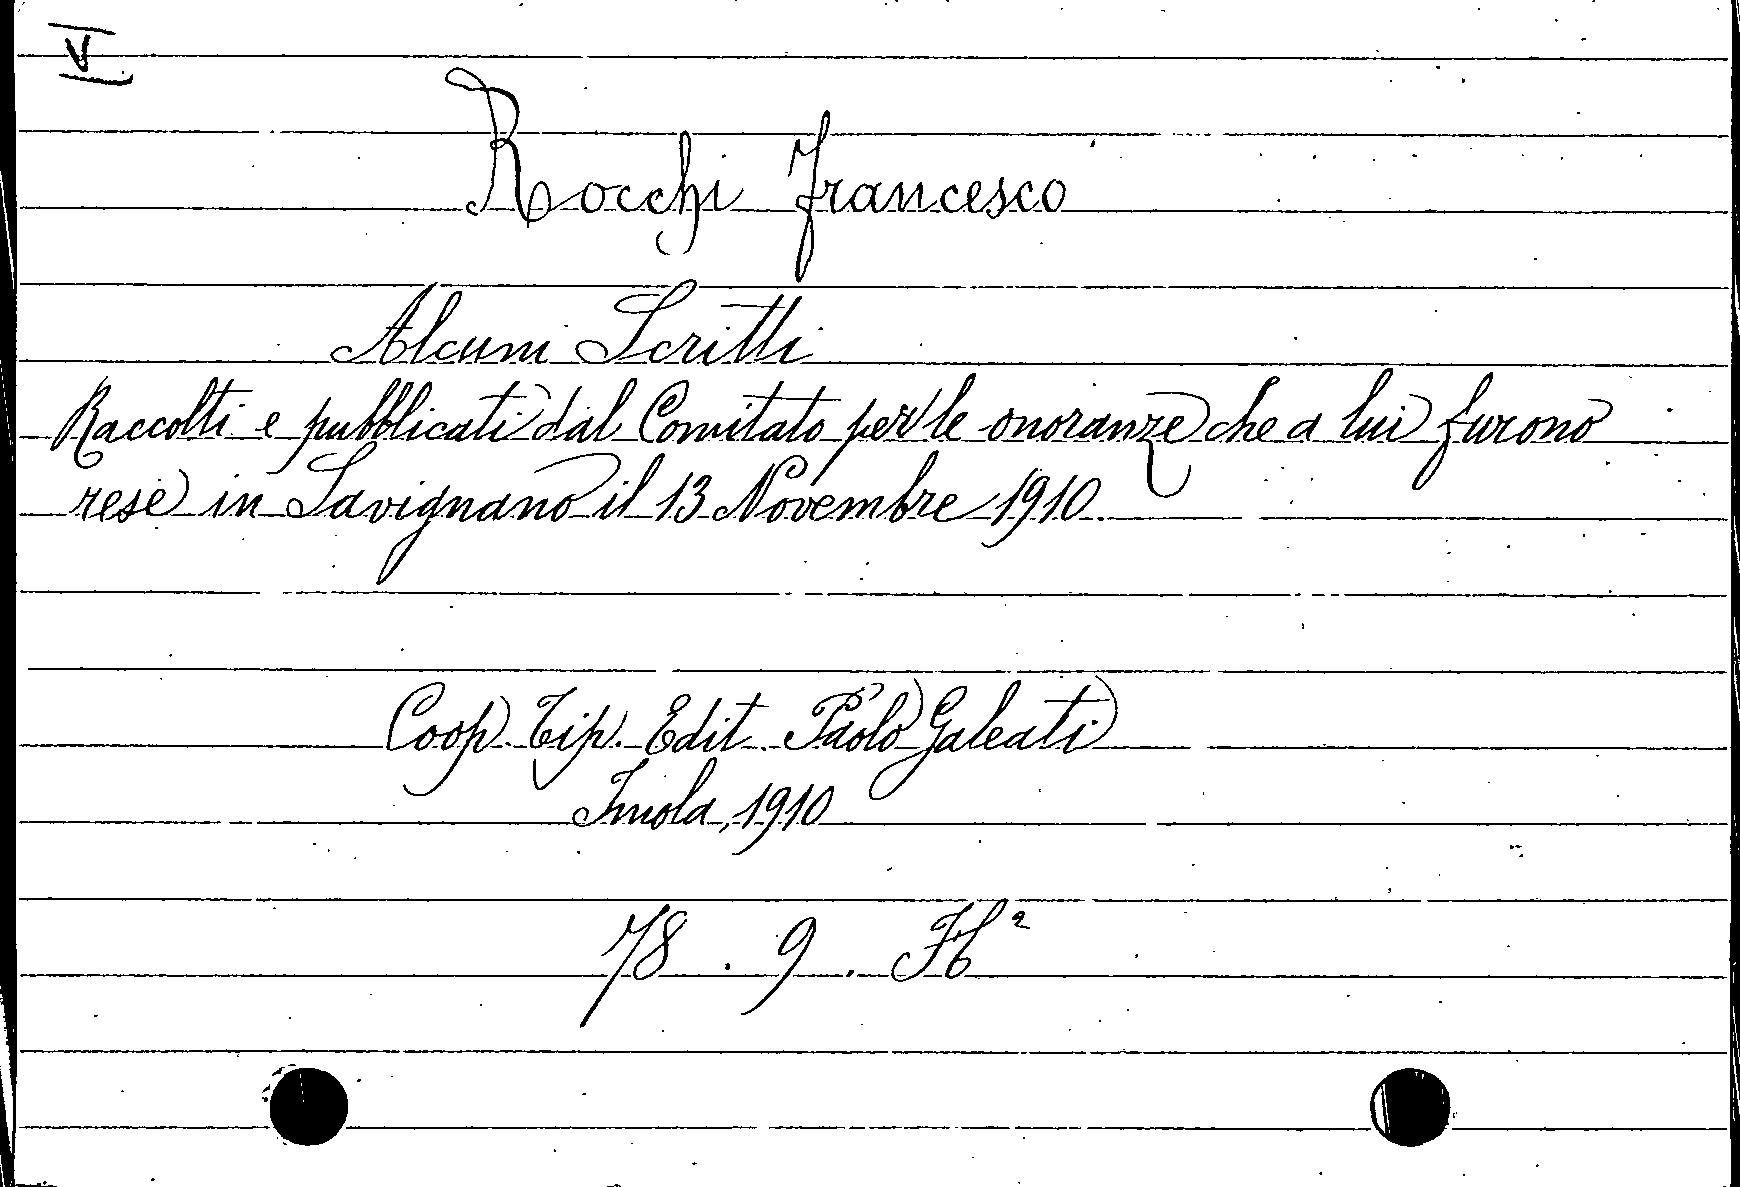 V
Rocchi Francesco
Alcuni Scritti
Raccolti e pubblicati dal Comitato per le onoranze che a lui furono
rese in Savignano il 13 Novembre 1910.
Coop. Tip. Edit. Paolo Galeati
Imola, 1910
78 . 9 . H²